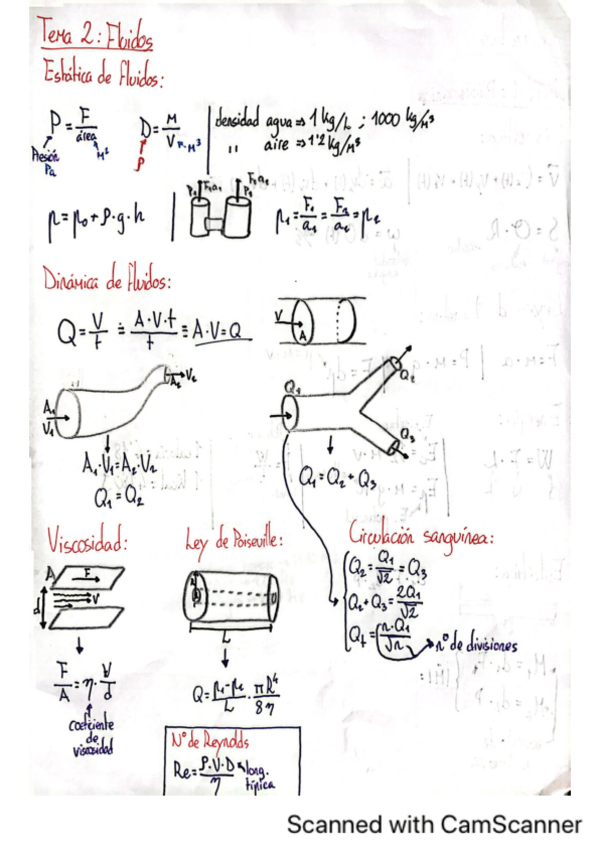 Tema 2: Fluidos
Estática de fluidos:
P = F/área
Presión Pa
M²
D = M/V
ρ
M³
densidad agua ⇒ 1 kg/L ; 1000 kg/M³
" aire ⇒ 1'2 kg/M³
p = p₀ + ρ·g·h
p₁ = F₁/a₁ = F₂/a₂ = p₂
Dinámica de fluidos:
Q = V/t = A·V·t/t = A·V = Q
V
A
A₁
V₁
A₂ V₂
A₁·V₁ = A₂·V₂
Q₁ = Q₂
Q₁
Q₂
Q₃
Q₁ = Q₂ + Q₃
Viscosidad:
A
F
V
d
F/A = η·V/d
coeficiente
de
viscosidad
Ley de Poiseuille:
L
Q = p₁-p₂/L · πR⁴/8η
Circulación sanguínea:
Q₂ = Q₁/√2 = Q₃
Q₂ + Q₃ = 2Q₁/√2
Qt = n·Q₁/√n
nº de divisiones
Nº de Reynolds
Re = ρ·V·D/η
long.
típica
Scanned with CamScanner